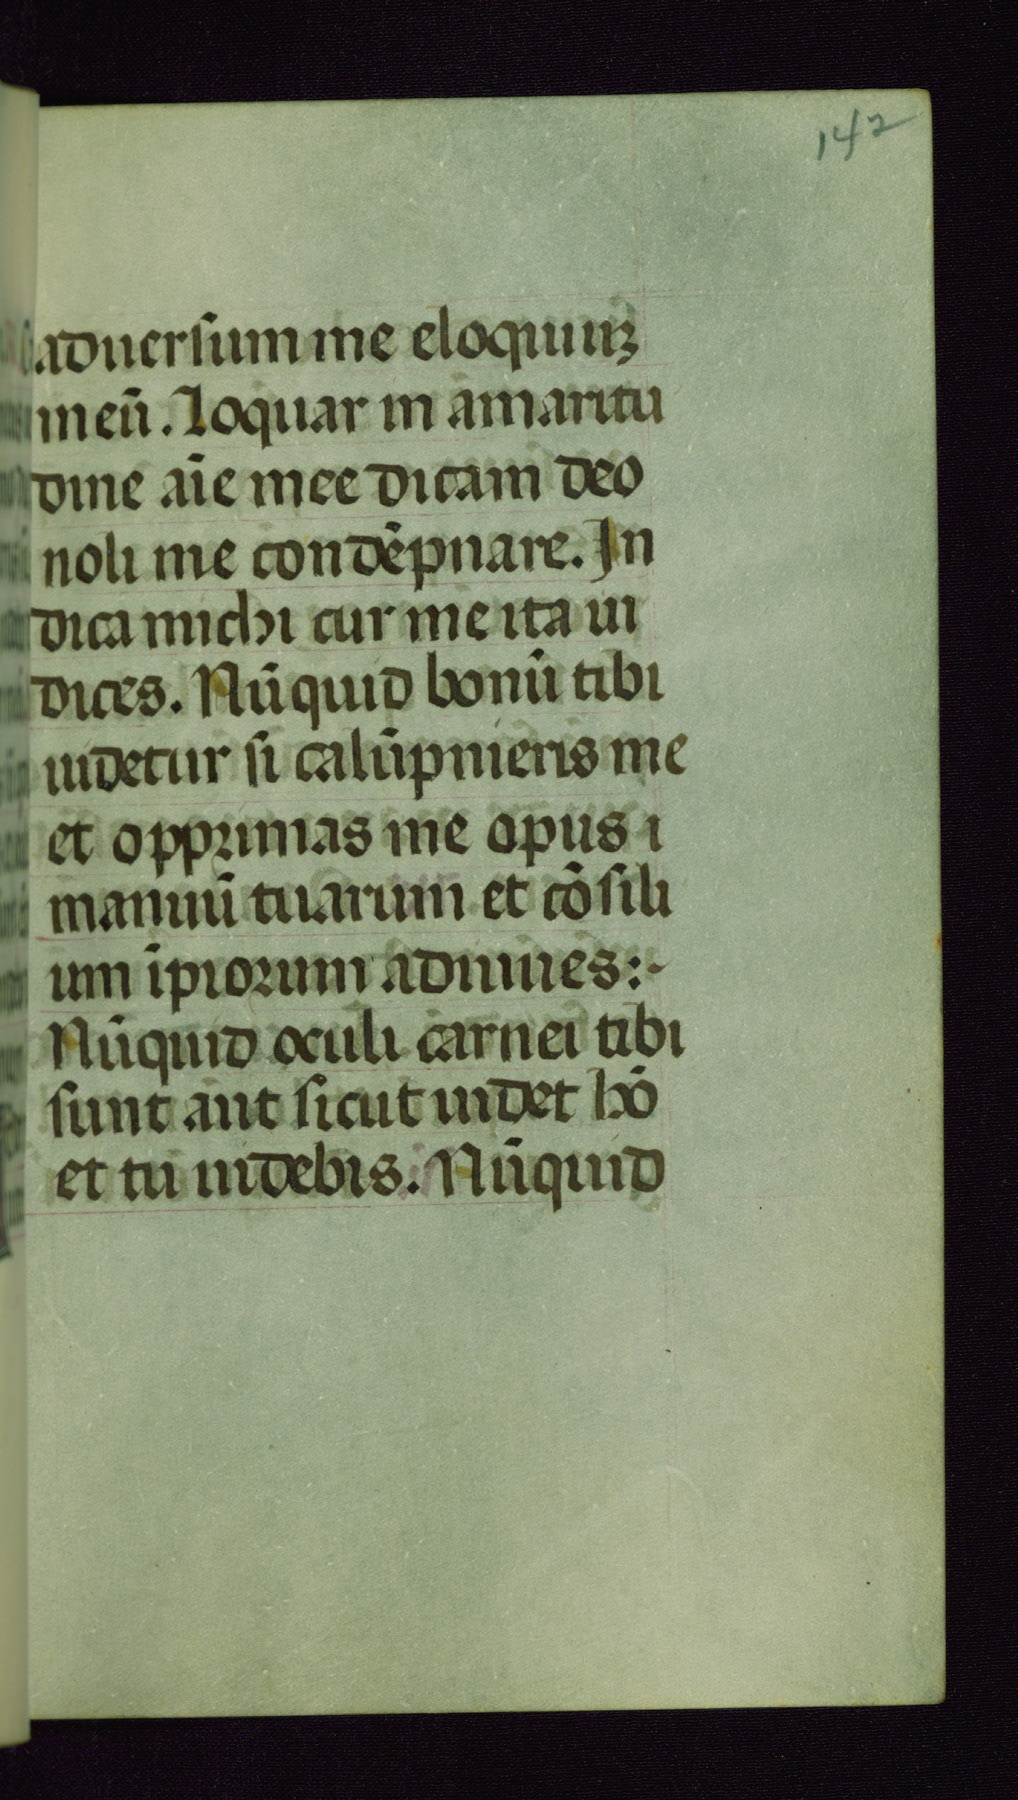 142
aduersum me eloquiuꝫ
meū. Loquar in amaritu
dine aīe mee dicam deo
noli me condēpnare. In
dica michi cur me ita iu
dices. Nūquid bonū tibi
uidetur si calūpnieris me
et opprimas me opus i
manuū tuarum et cōsili
um īpiorum adiuues:~
Nūquid oculi carnei tibi
sunt aut sicut uidet hō
et tu uidebis. Nūquid